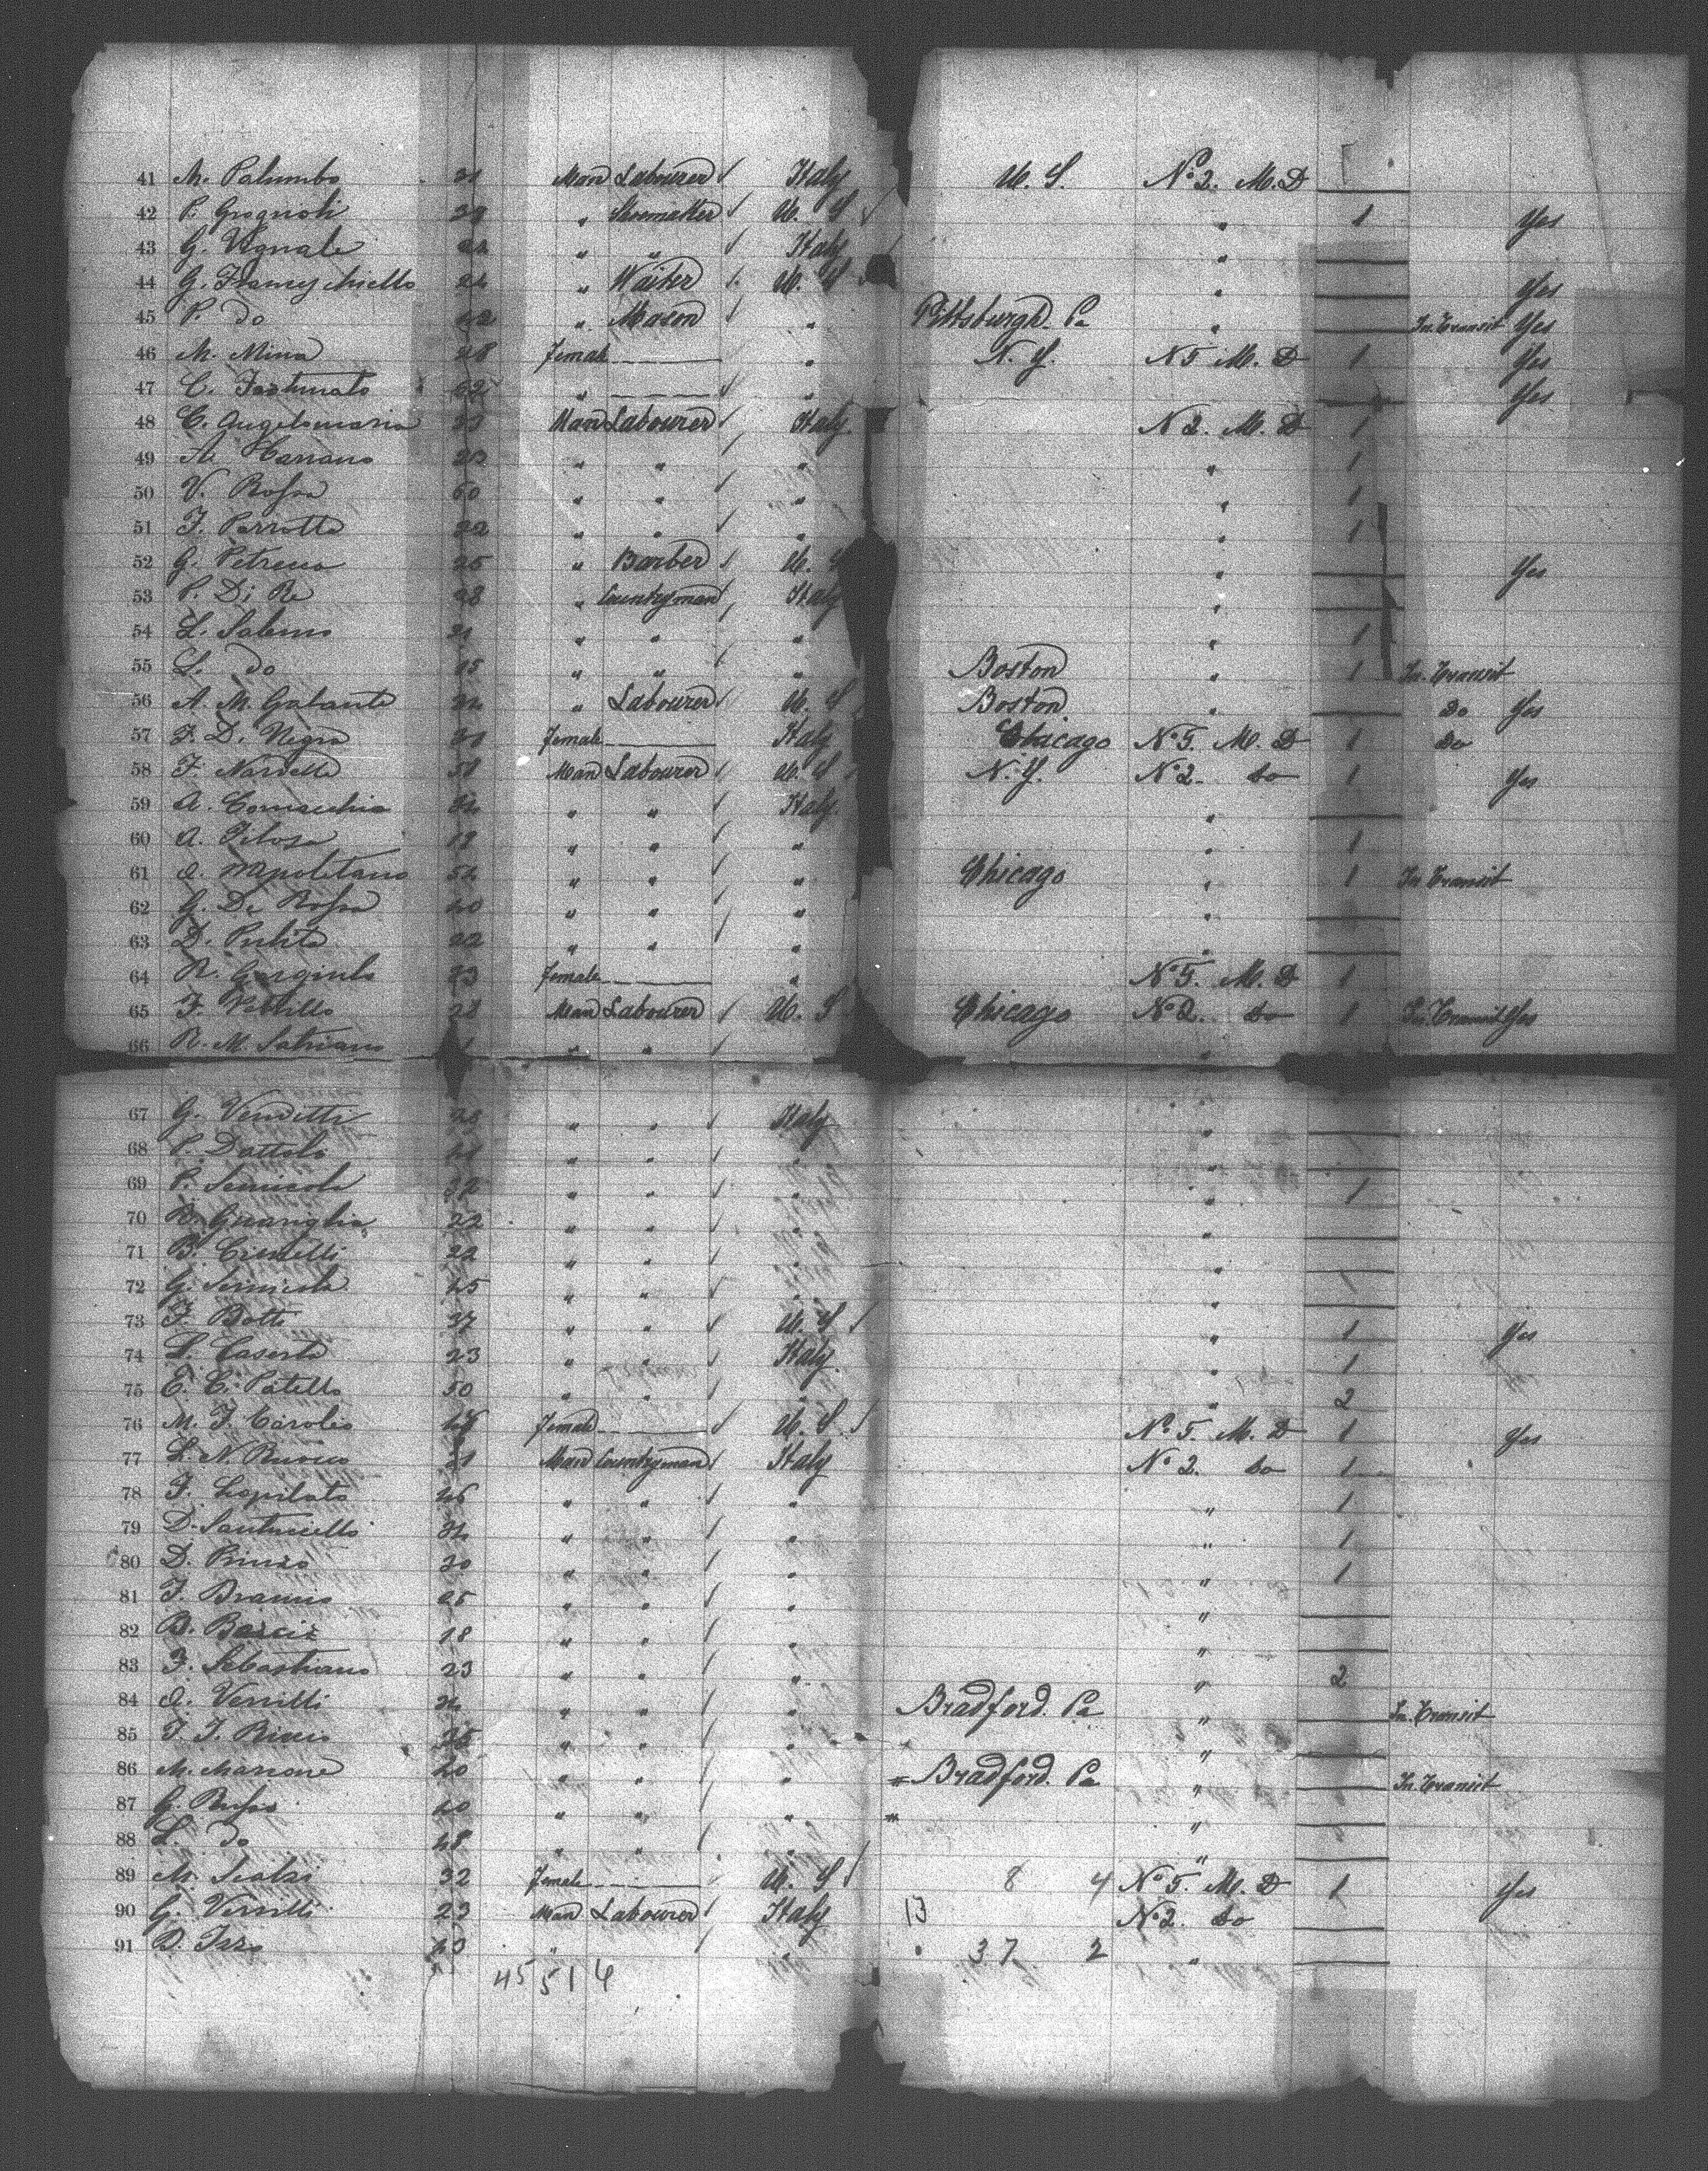 41 M. Palumbo 21 Man Labourer Italy U. S. No 2. M. D 1
42 P. Grognoli " Shoematter U. S 1 Yes
43 G. Vignale " " Italy
44 G. 24 " Waiter U. S Yes
45 P. do 42 " Mason " Pittsburgh. Pa " In. Transit Yes
46 M. Mina 48 Female " N. Y. N 5 M. D 1 Yes
47 C. Fortunato 62 " " Yes
48 C. Angelomaria 23 Man Labourer Italy N 2. M. D 1
49 A. Carrano " " " " 1
50 V. Rossa 60 " " " " 1
51 F. Parrotta 22 " " " " 1
52 G. 25 " Barber U. S " Yes
53 P. Di Re 28 " Countryman Italy "
54 L. Salerno 21 " " " " 1
55 L. do 15 " " " Boston " 1 In. Transit
56 A. M. Galante " Labourer U. S Boston " Do Yes
57 F. Di Negro Female Italy Chicago No 5. M. D 1 Do
58 F. Nardella Man Labourer U. S N. Y. No 2. do 1 Yes
59 A. Cornacchia " " Italy "
60 A. Filosa " " " " 1
61 A. Napoletano 52 " " " Chicago " 1 In Transit
62 G. De Rossa 40 " " " "
63 D. 22 " " " "
64 R. Gargiulo 23 Female " No 5. M. D 1
65 F. Petrillo 28 Man Labourer U. S Chicago No 2. do 1 In. Transit Yes
66 R. M. Satriano " " "
67 G. Venditti 28 " " Italy "
68 P. Dattolo " " " "
69 P. Semicola 32 " " " " 1
70 R. Guariglia 22 " " " "
71 B. 22 " " " "
72 G. Semicola 45 " " " "
73 F. Botti 37 " " U. S " 1 Yes
74 L. Caserta 23 " " Italy " 1
75 E. C. Patello 50 " " " " 2
76 M. F. Caroleo Female U. S No 5. M. D 1 Yes
77 L. N. Man Countryman Italy No 2. do 1
78 F. Lapilato 26 " " " " 1
79 D. Santuciello " " " " 1
80 D. 30 " " " " 1
81 F. " " " "
82 B. 18 " " " "
83 F. Sebastiano 23 " " " " 2
84 A. Verrilli " " " Bradford. Pa " In. Transit
85 F. F. 35 " " " "
86 M. Marrone 40 " " " Bradford. Pa " In. Transit
87 G. Russo 40 " " " "
88 L. do 48 " " " "
89 M. Scalzi 32 Female U. S 8 4 No 5. M. D 1 Yes
90 G. Verrilli 23 Man Labourer Italy 13 No 2. do
91 D. Izzo 40 " " 37 2 "
45 51 6